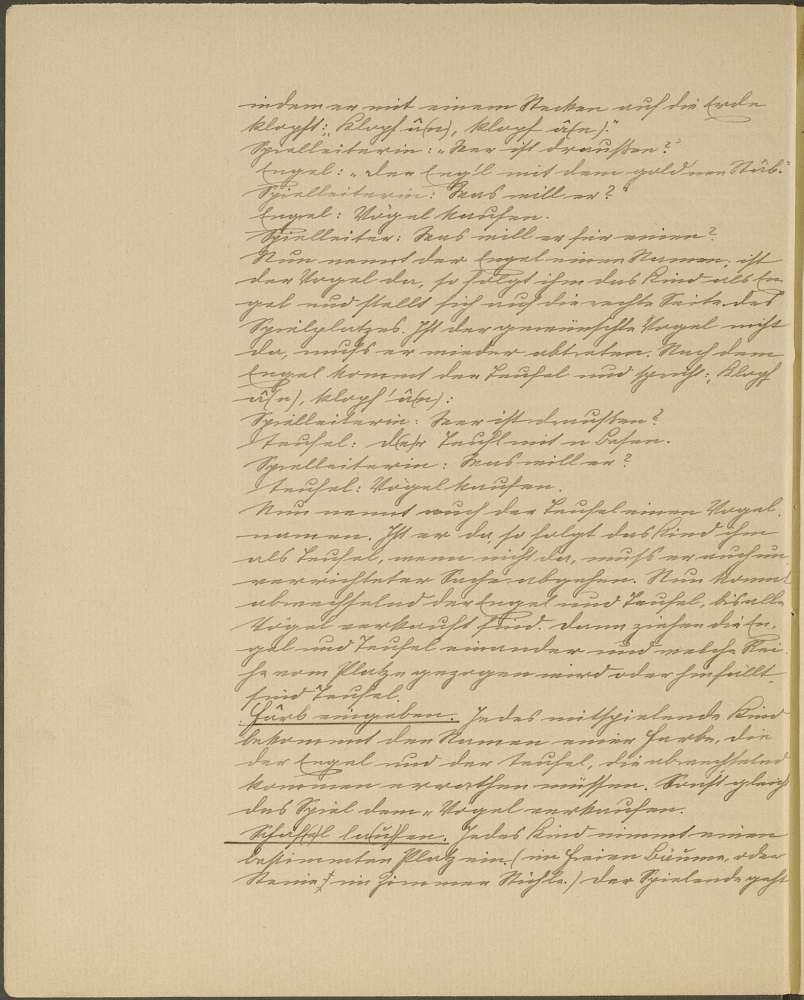 indem er mit einem Stecken auf die Erde
klopft: „Klopf â(n), klopf â(n)."
Spielleiterin: „Wer ist draußen?"
Engel: „der Eng'l mit dem gold'nen Stab."
Spielleiterin: Was will er?"
Engel: Vögel kaufen.
Spielleiter: Was will er für einen?
Nun nennt der Engel einen Namen, ist
der Vogel da, so folgt ihm das Kind als En-
gel und stellt sich auf die rechte Seite des
Spielplatzes. Ist der gewünschte Vogel nicht
da, muß er wieder abtreten. Nach dem
Engel kommt der Teufel und spricht: „Klopf
â(n), klopf' â(n):
Spielleiterin: Wer ist draußen?
Teufel: d(e)r Teufl mit n Besen.
Spielleiterin: Was will er?
Teufel: Vögel kaufen.
Nun nennt auch der Teufel einen Vogel-
namen. Ist er da, so folgt das Kind ihm
als Teufel, wenn nicht da, muß er auch un-
verrichteter Sache abgehen. Nun kommt
abwechselnd der Engel und Teufel, bis alle
Vögel verkauft sind. Dann ziehen die En-
gel und Teufel einander und welche Rei-
he vom Platze gezogen wird oder hinfällt
sind Teufel.
Farb eingeben. Jedes mitspielende Kind
bekommt den Namen einer Farbe, die
der Engel und der Teufel, die abwechselnd
kommen errathen müssen. Sonst gleich
das Spiel dem „Vögel verkaufen.
Jedes Kind nimmt einen
bestimmten Platz ein. (im Freien Bäume, oder
Steine, im Zimmer Stühle.) Der Spielende geht